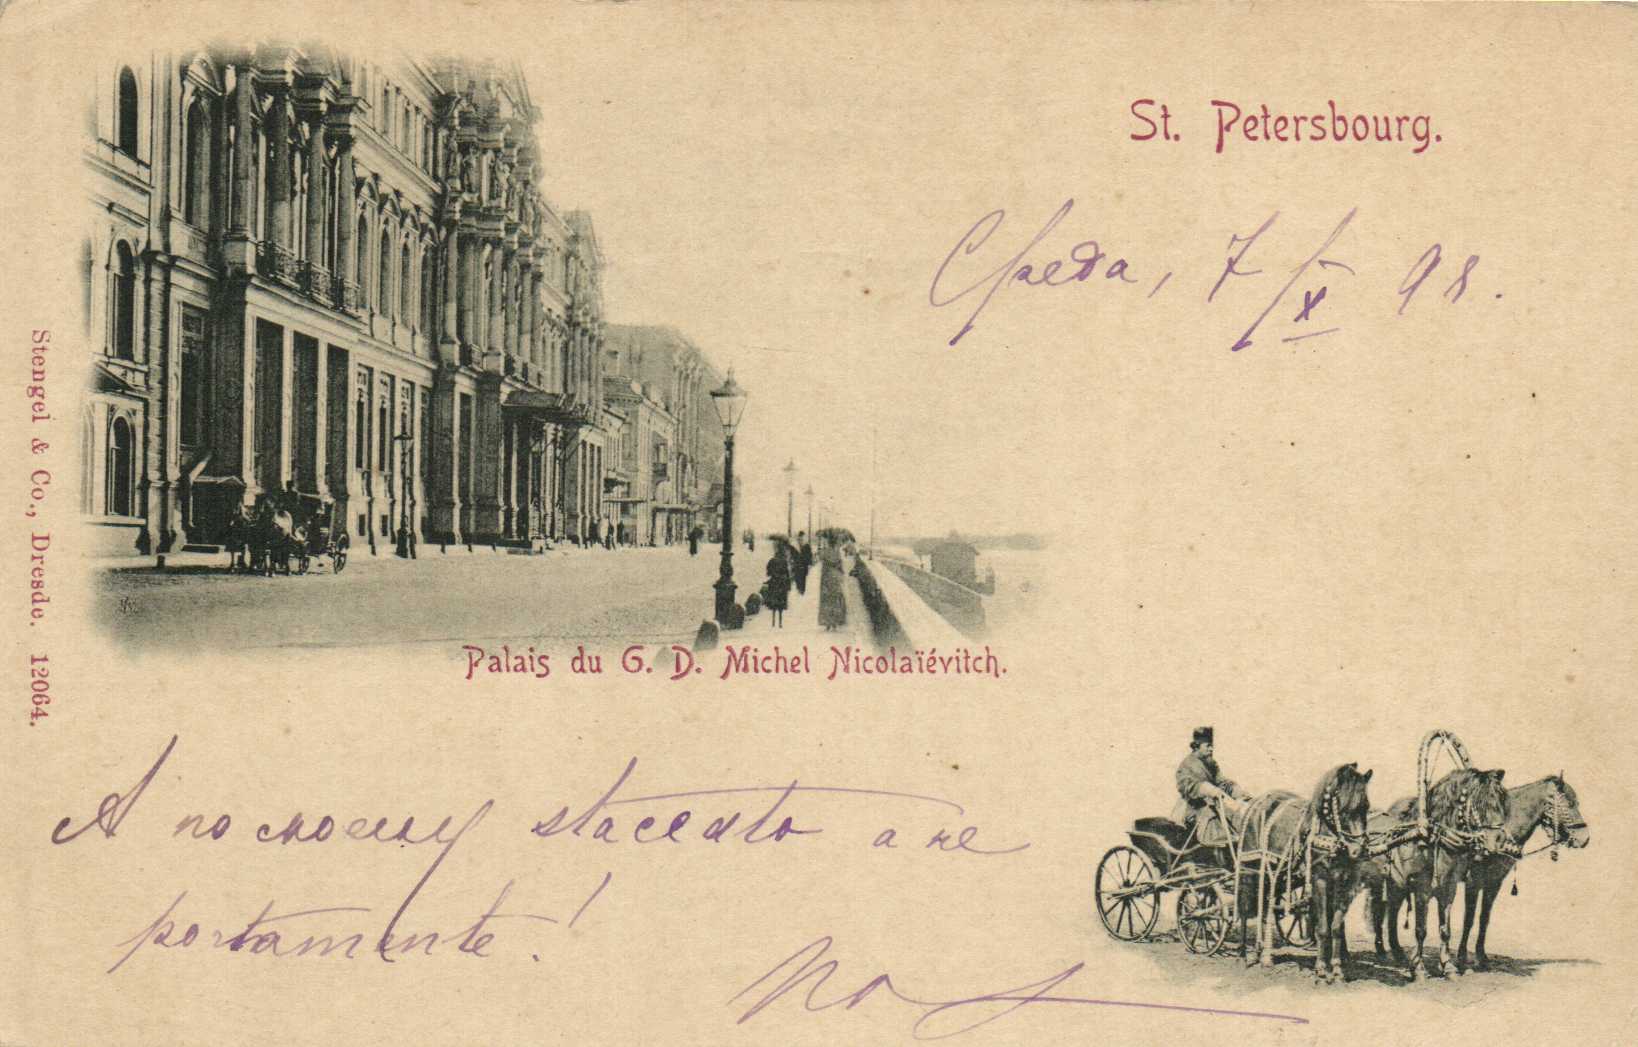 St. Petersbourg.
Среда, 7/X 98.
Stengel & Co., Dresde. 12064.
Palais du G. D. Michel Nicolaïévitch.
А по моему staccato а не
portamente!